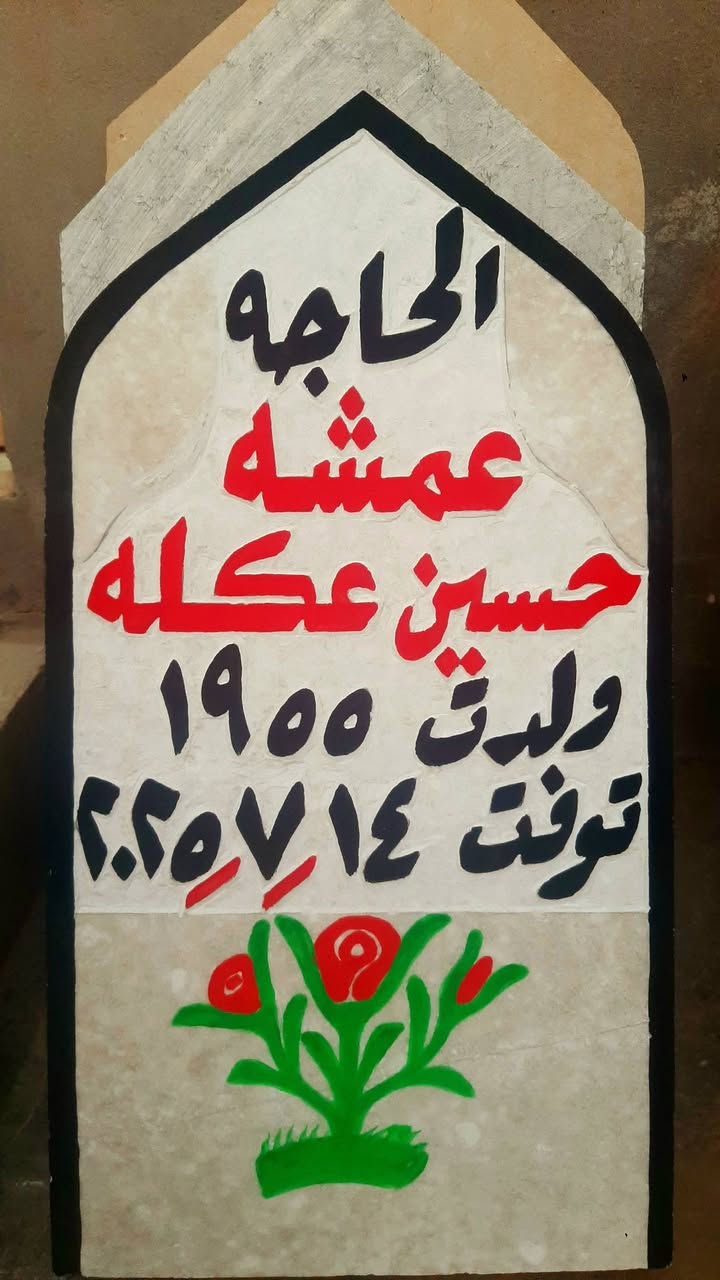 الحاجه
عمشه
حسين عكله
ولدت ١٩٥٥
توفت ١٤/٧/٢٠٢٥